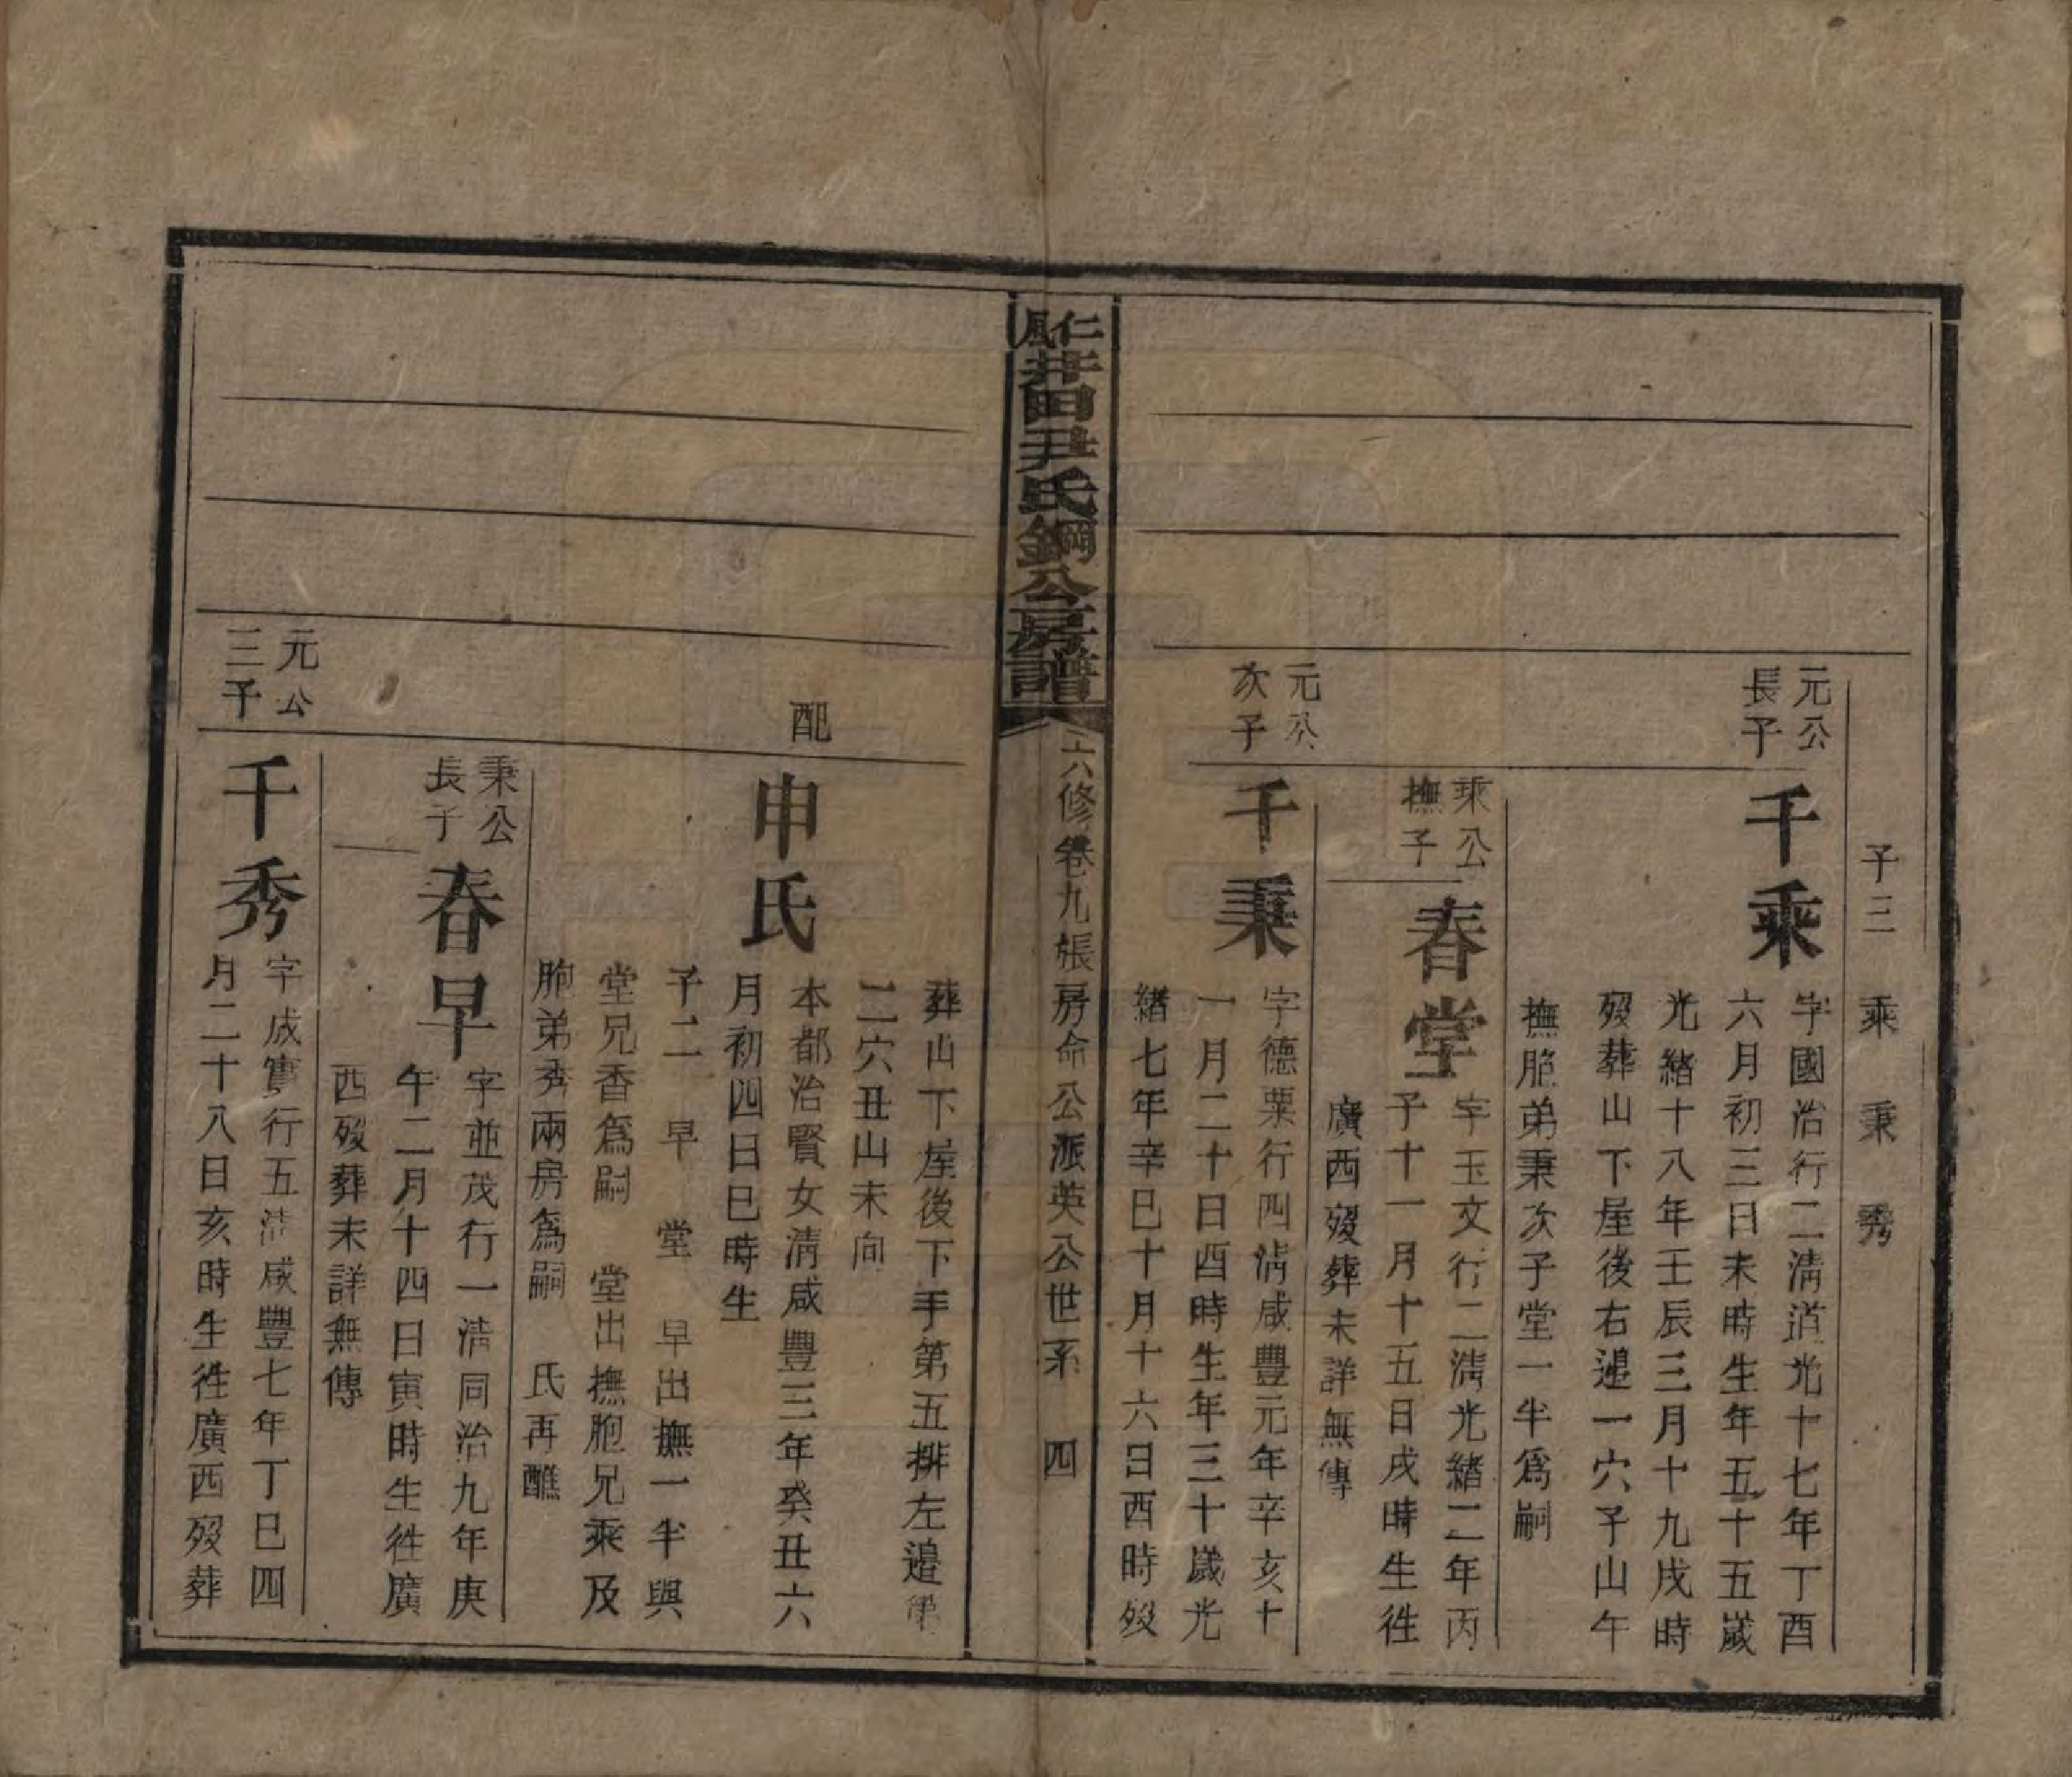 子三　乘　秉　秀
元公
長子
千乘
字國治行二淸道光十七年丁酉
六月初三日未時生年五十五歲
光緒十八年壬辰三月十九戌時
歿葬山下屋後右邉一穴子山午
撫胞弟秉次子堂一半爲嗣
乘公
撫子
春堂
字玉文行二淸光緒二年丙
子十一月十五日戌時生徃
廣西歿葬未詳無傳
元公
次子
千秉
字德粟行四淸咸豐元年辛亥十
一月二十日酉時生年三十歲光
緒七年辛巳十月十六日酉時歿
仁風井田尹氏鋼公房譜
六修卷九張房命公派英公世系　四
葬山下屋後下手第五排左邉第
二穴丑山未向
配
申氏
本都治賢女淸咸豐三年癸丑六
月初四日巳時生
子二　早　堂　早出撫一半與
堂兄香爲嗣　堂出撫胞兄乘及
胞弟秀兩房爲嗣　氏再醮
秉公
長子
春早
字並茂行一淸同治九年庚
午二月十四日寅時生徃廣
西歿葬未詳無傳
元公
三子
千秀
字成實行五淸咸豐七年丁巳四
月二十八日亥時生徃廣西歿葬